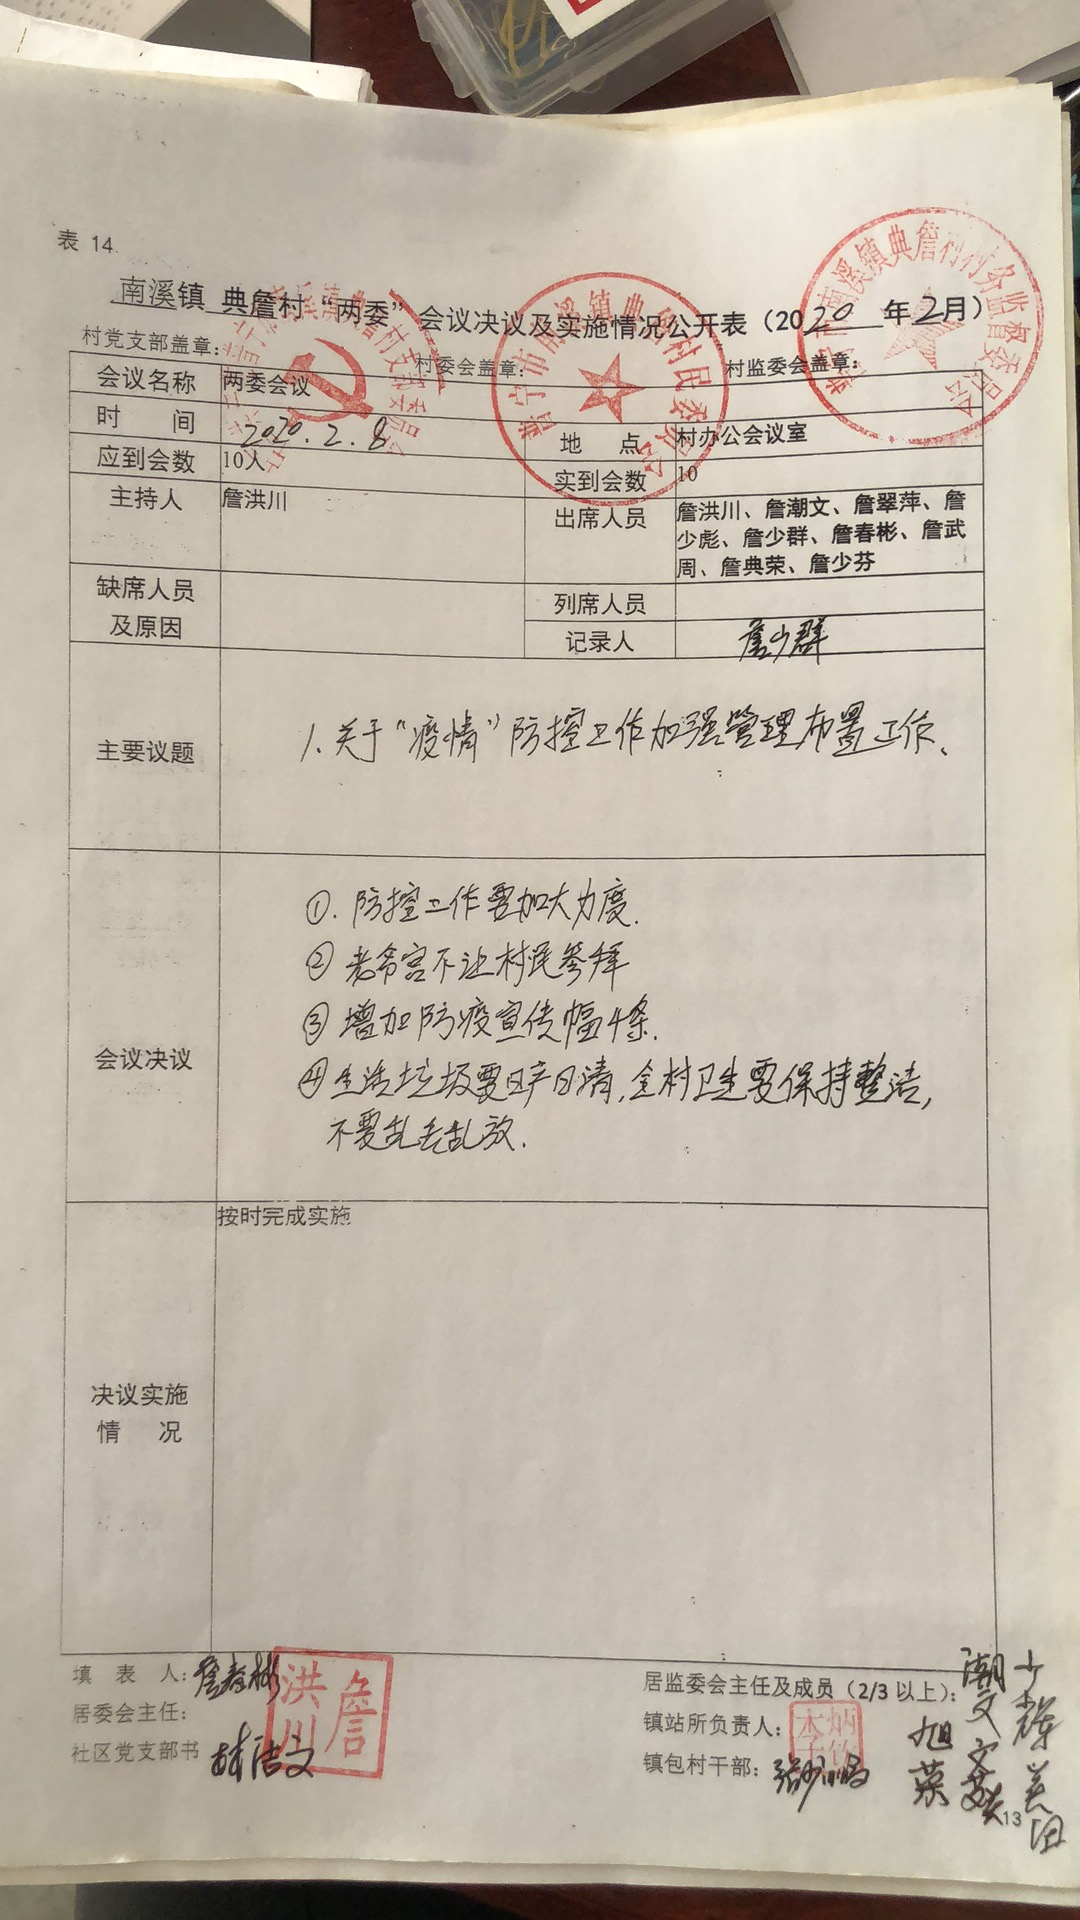 表 14
南溪镇 典詹村“两委”会议决议及实施情况公开表（2020 年2月）
村党支部盖章： 村委会盖章： 村监委会盖章：
会议名称 两委会议
时 间 2020.2.8 地 点 村办公会议室
应到会数 10人 实到会数 10
主持人 詹洪川 出席人员 詹洪川、詹潮文、詹翠萍、詹
少彪、詹少群、詹春彬、詹武
周、詹典荣、詹少芬
缺席人员
及原因
列席人员
记录人 詹少群
主要议题 1.关于“疫情”防控工作加强管理布置工作、
会议决议
①.防控工作要加大力度.
② 老爷宫不让村民参拜
③ 增加防疫宣传幅4条.
④生活垃圾要日产日清,全村卫生要保持整洁,
不要乱丢乱放.
按时完成实施
决议实施
情 况
填 表 人：詹春彬
居委会主任： 詹洪川
社区党支部书
居监委会主任及成员（2/3 以上）：
镇站所负责人：
镇包村干部：
13
普宁市南溪镇典詹村村民委员会
普宁市南溪镇典詹村村务监督委员会